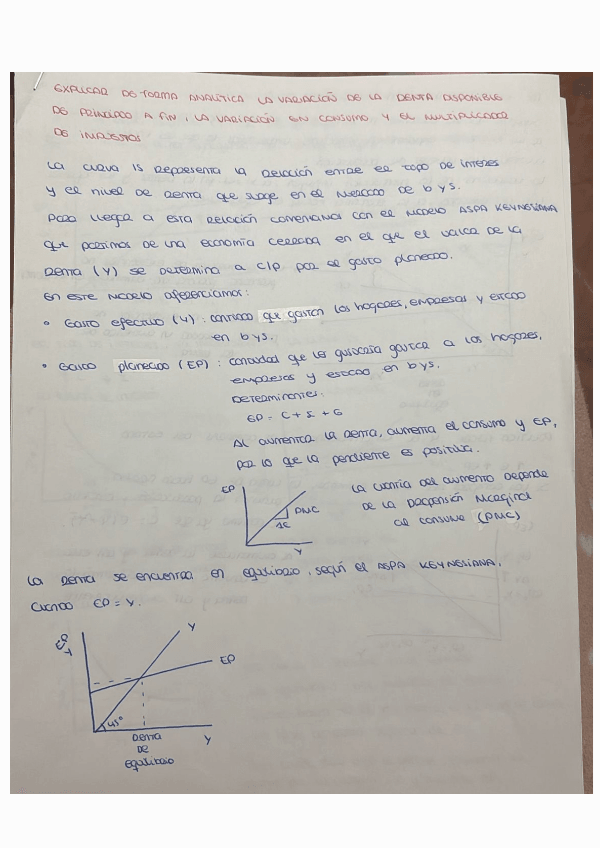 EXPLICAR DE FORMA ANALÍTICA LA VARIACIÓN DE LA RENTA DISPONIBLE
DE PRINCIPIO A FIN, LA VARIACIÓN EN CONSUMO Y EL MULTIPLICADOR
DE IMPUESTOS
La curva IS representa la relación entre el tipo de interés
y el nivel de renta que surge en el mercado de b y s.
Para llegar a esta relación comenzamos con el modelo ASPA KEYNESIANA
que partimos de una economía cerrada en el que el valor de la
renta (Y) se determina a C/P por el gasto planeado.
En este modelo diferenciamos:
• Gasto efectivo (Y): cantidad que gastan los hogares, empresas y estado
en b y s.
• Gasto planeado (EP): cantidad que les gustaría gastar a los hogares,
empresas y estado en b y s.
Determinantes:
EP = C + I + G
Al aumentar la renta, aumenta el consumo y EP,
por lo que la pendiente es positiva.
EP
PMC
1€
Y
La cuantía del aumento depende
de la Propensión Marginal
al consumo (PMC)
La renta se encuentra en equilibrio, según el ASPA KEYNESIANA,
cuando EP = Y.
EP
Y
Y
EP
45°
Renta
de
equilibrio
Y